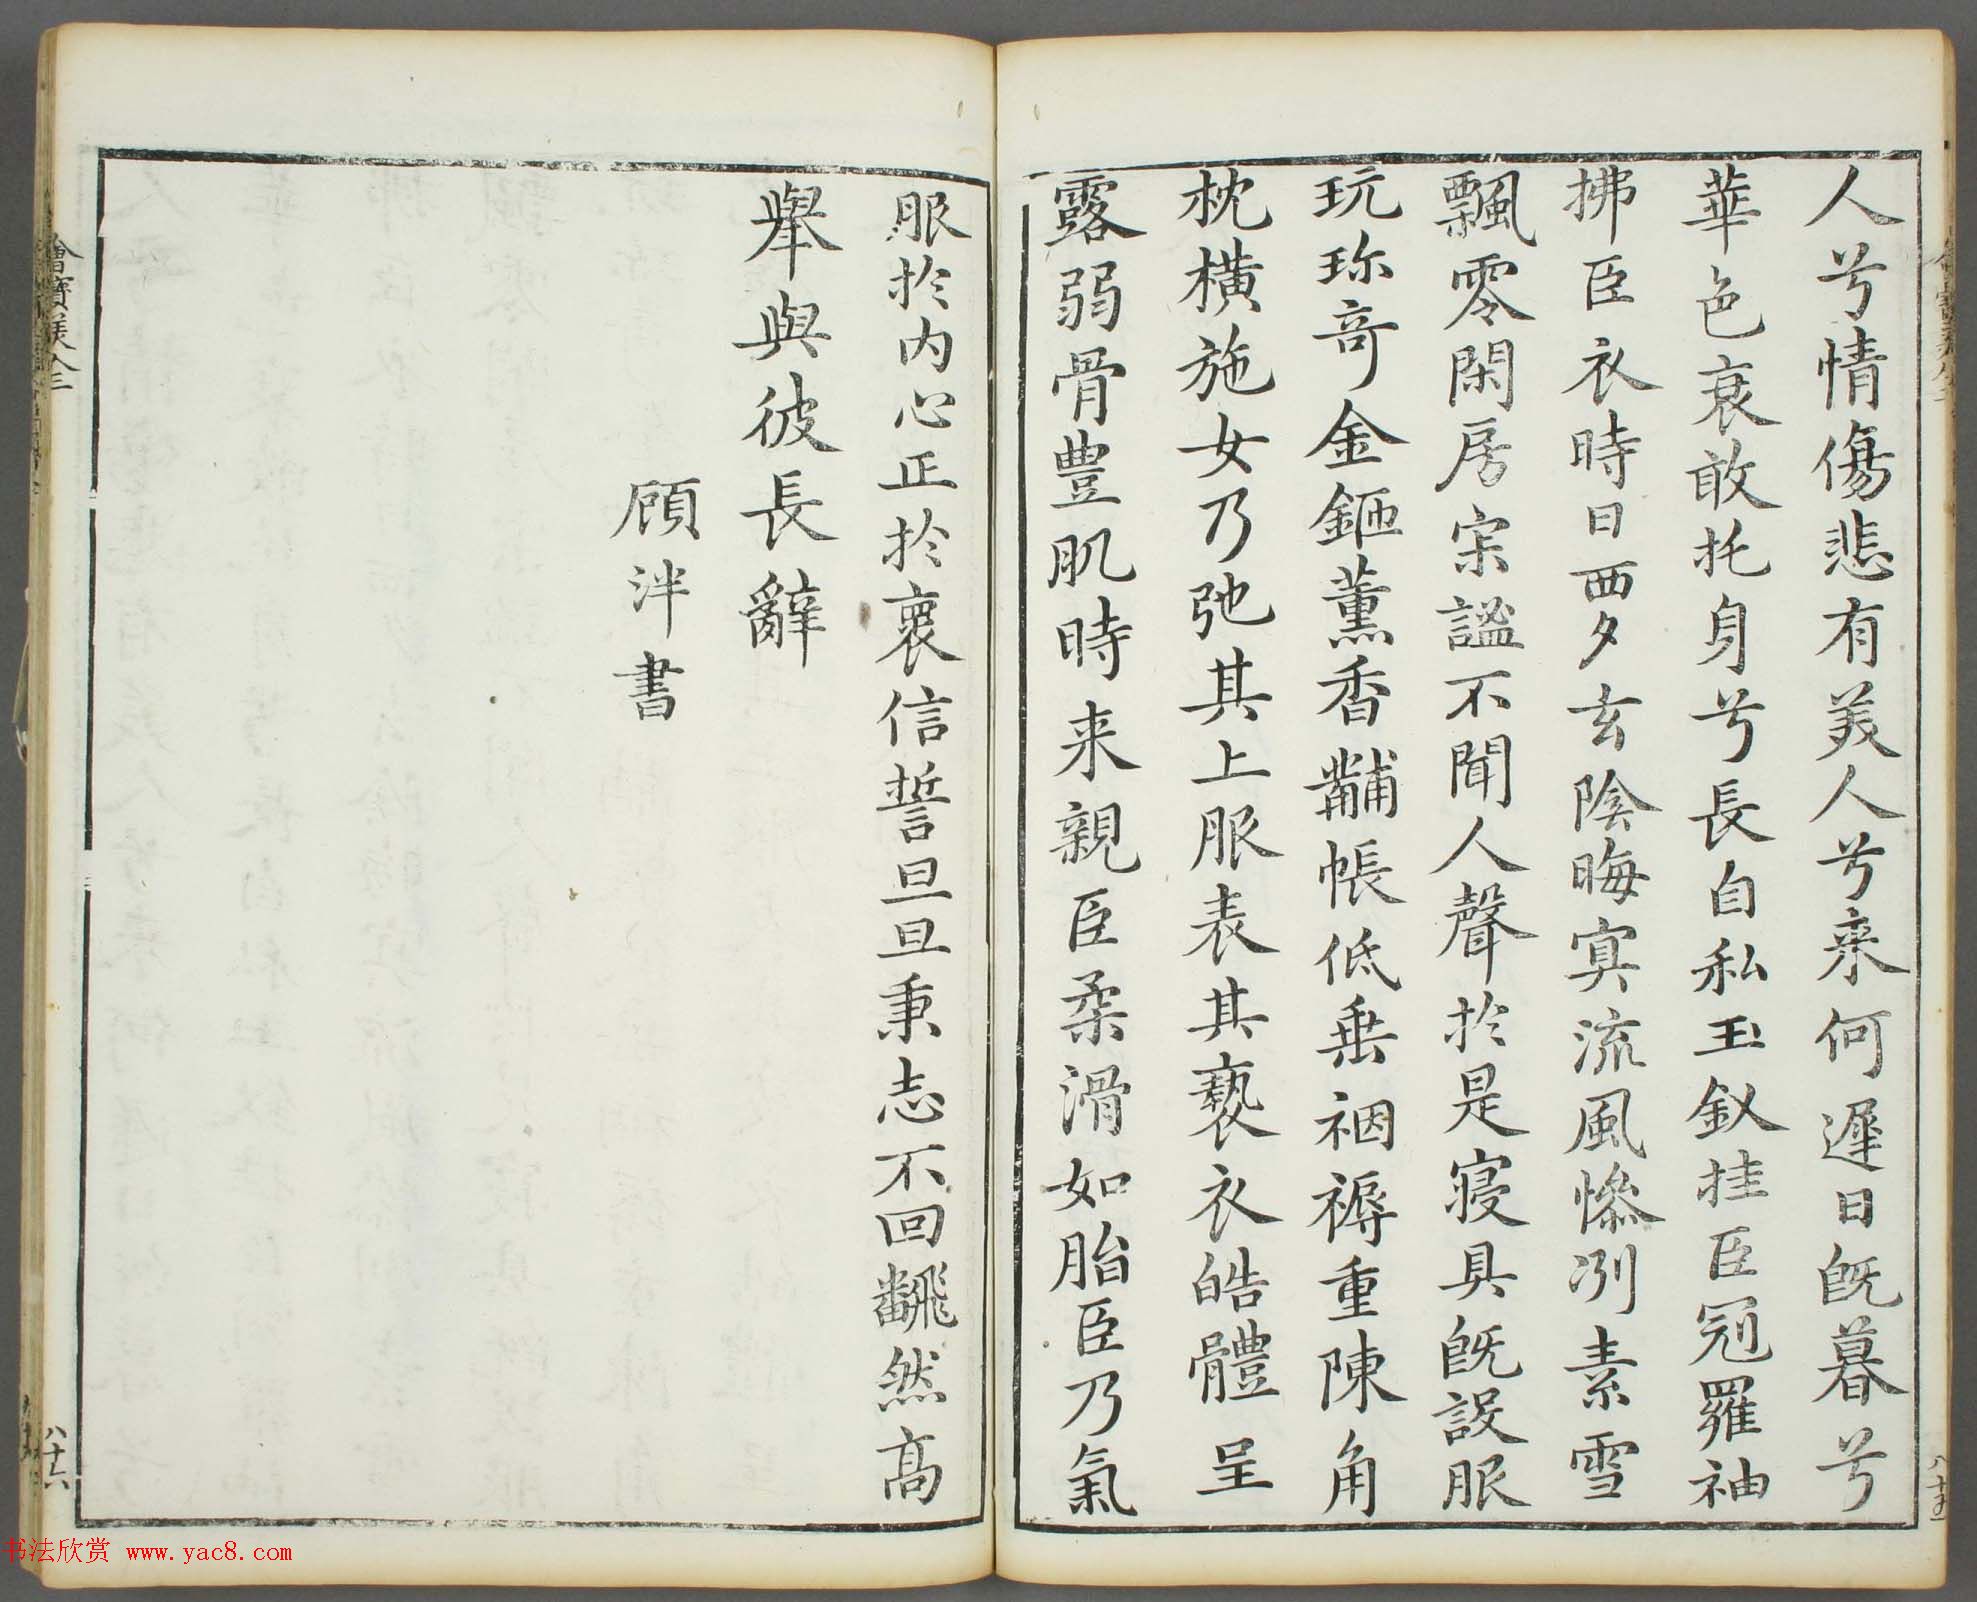 人兮情傷悲有美人兮来何遲日既暮兮
華色衰敢托身兮長自私玉釵挂臣冠羅袖
拂臣衣時日西夕玄陰晦寞流風慘冽素雪
飄零閑房寂謐不聞人聲於是寝具既設服
玩珎奇金鉔薰香黼帳低垂裀褥重陳角
枕橫施女乃弛其上服表其褻衣皓體呈
露弱骨豊肌時来親臣柔滑如脂臣乃氣
服於内心正於懷信誓旦旦秉志不回飜然高
舉與彼長辭
顧泮書
八十六
书法欣赏 www.yac8.com